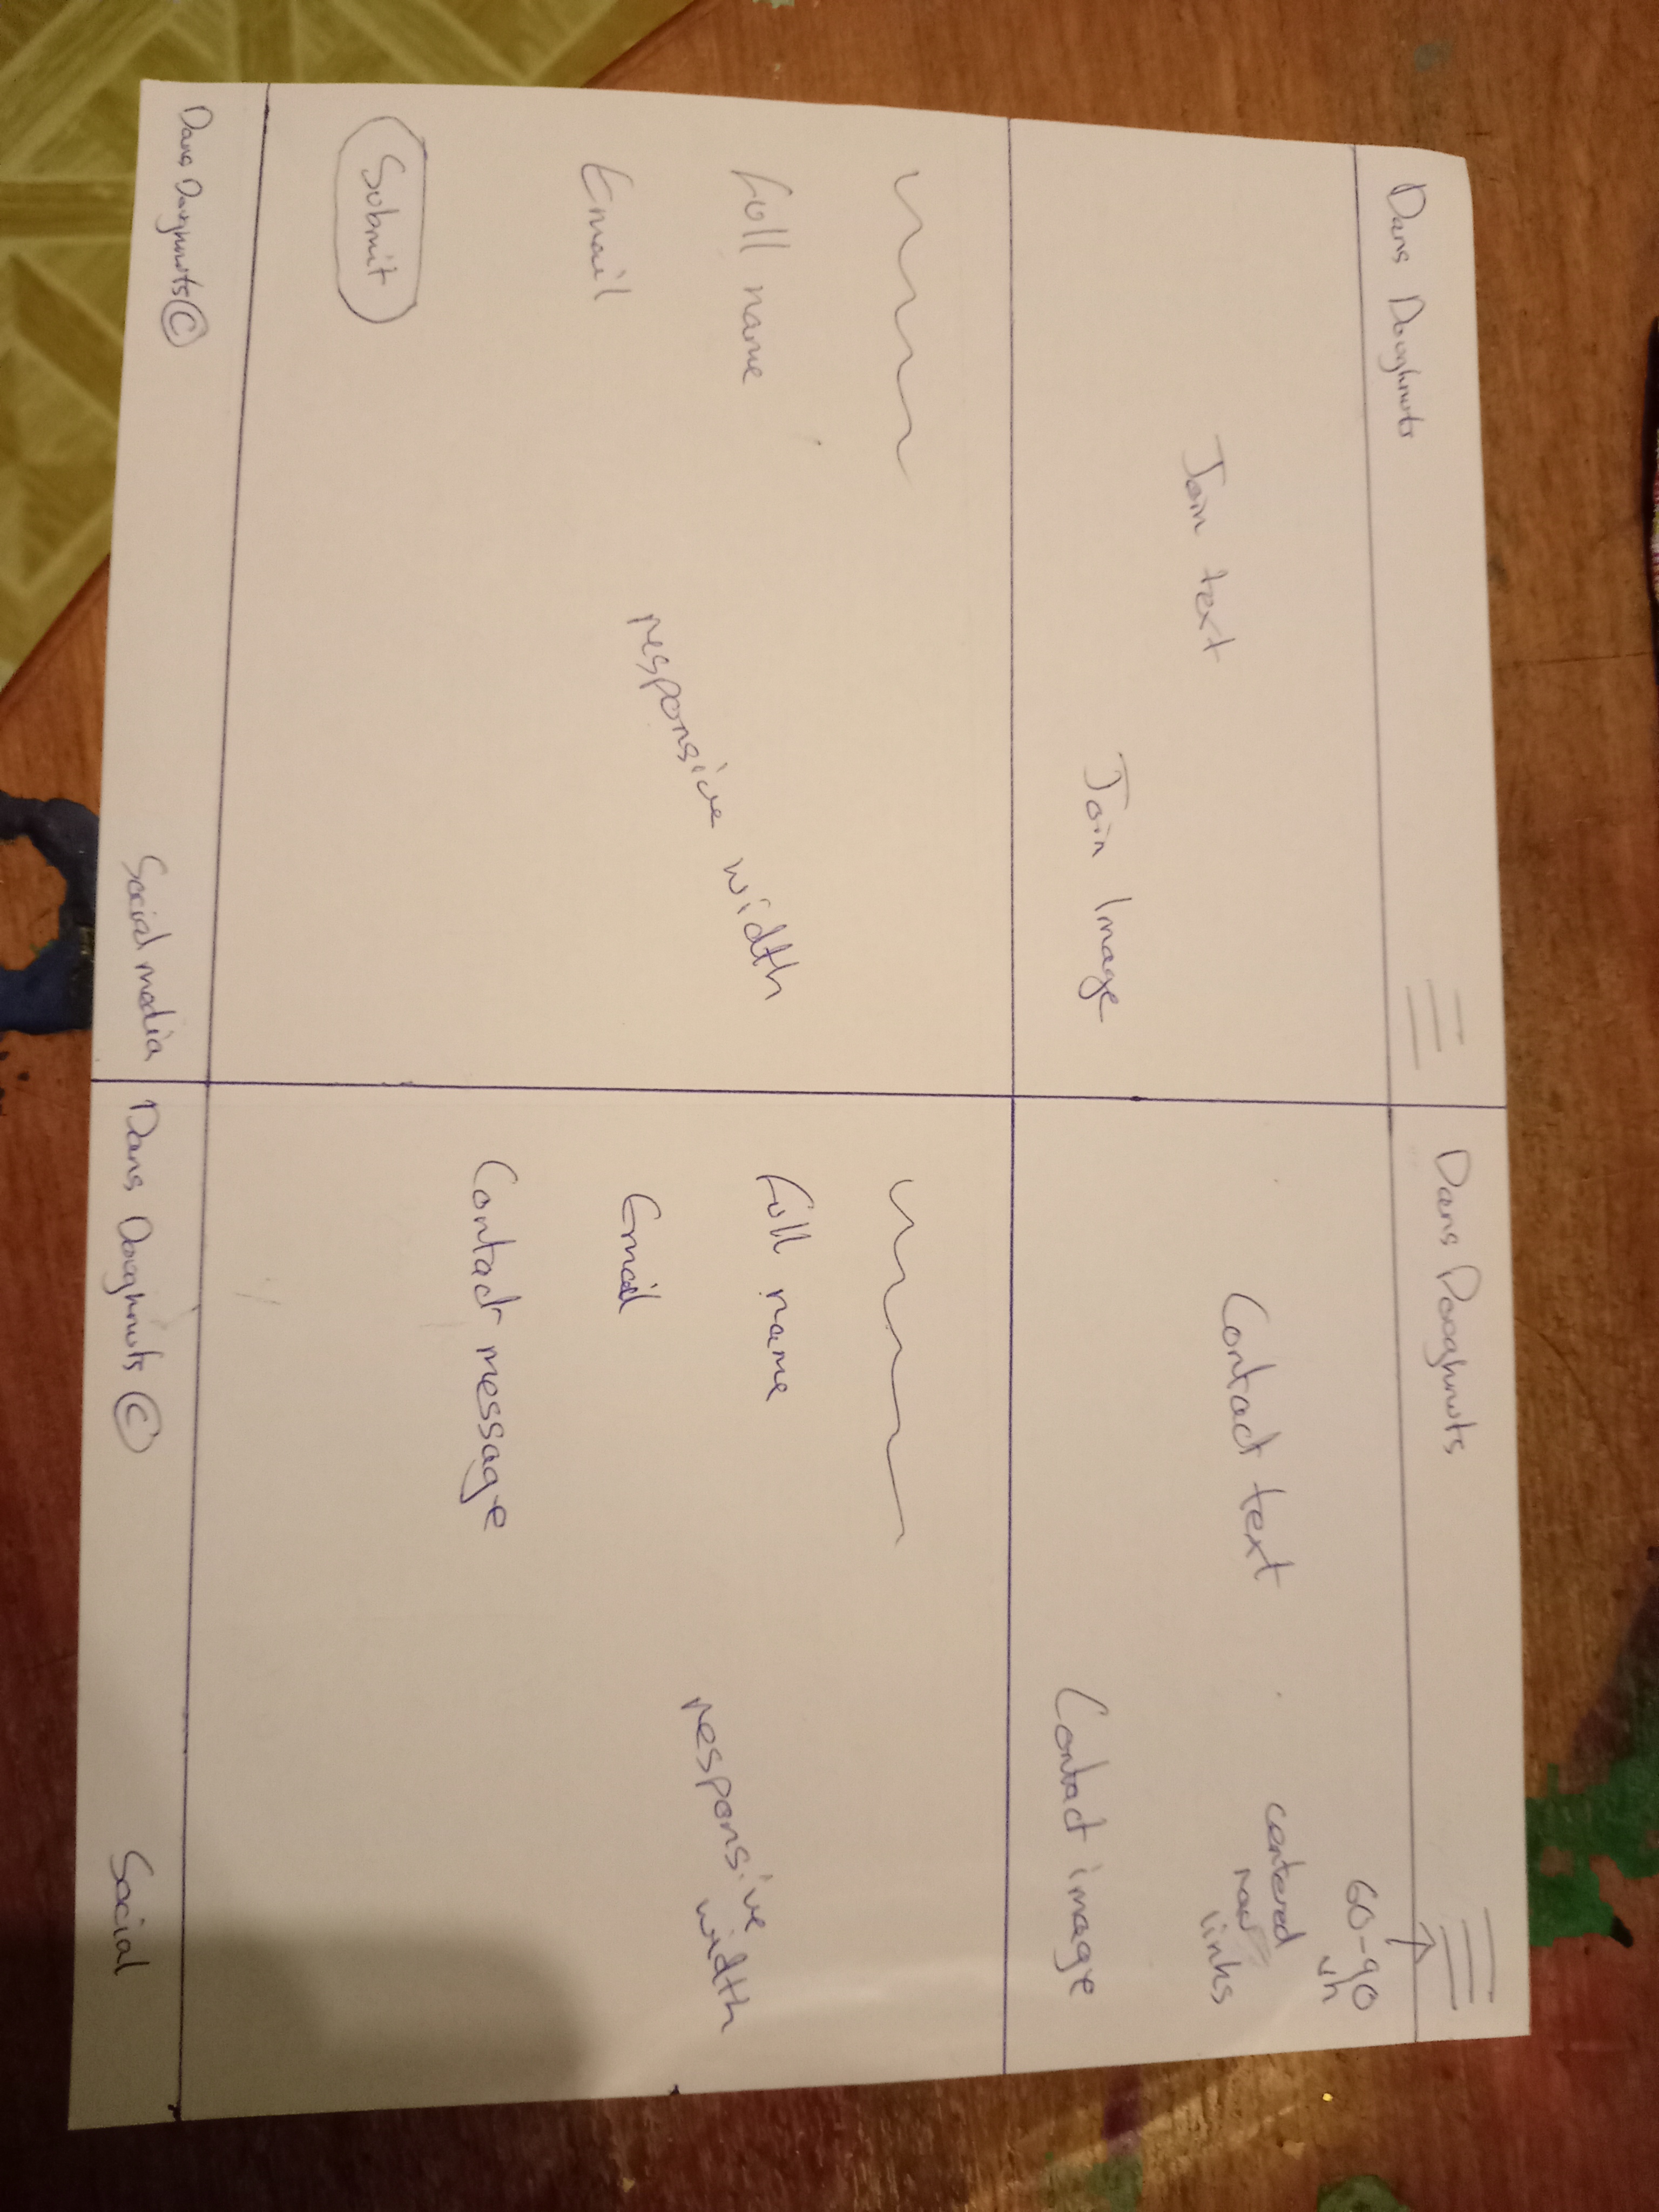 Dans Doughnuts
Join text
Join Image
Full name
Email
responsive width
Submit
Dans Doughnuts ©
Social media
Dans Doughnuts
60-90
vh
centered
nav
links
Contact text
Contact image
Full name
Email
Contact message
responsive
width
Dans Doughnuts ©
Social